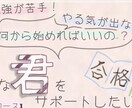 強が苦手!
やる気が出な
何から始めればいいの?
な君を
合格
サポートした